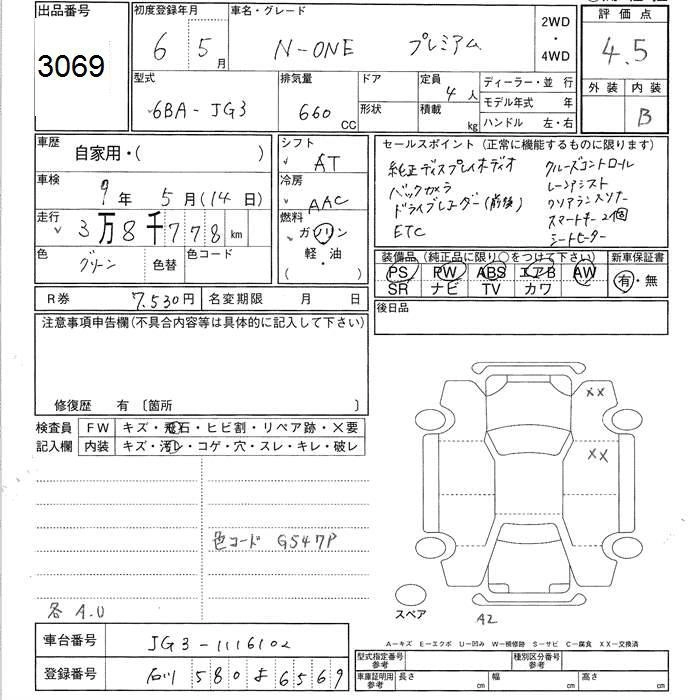 出品番号
3069
初度登録年月
6 5月
車名・グレード
N-ONE プレミアム
2WD
・
4WD
評価点
4.5
外装 内装
B
型式
6BA-JG3
排気量
660 CC
ドア
形状
定員
4人
積載
kg
ディーラー・並 行
モデル年式 年
ハンドル 左・右
車歴
自家用・( )
車検
7年 5月(14日)
走行
3万8千778km
色
グリーン
色替
色コード
シフト
AT
冷房
AAC
燃料
ガソリン
軽・油
( )
セールスポイント(正常に機能するものに限ります)
純正ディスプレイオーディオ クルーズコントロール
バックカメラ レーンアシスト
ドライブレコーダー(前後) クリアランスソナー
スマートキー2個
ETC シートヒーター
装備品(純正品に限り○をつけて下さい)
PS PW ABS エアB AW
SR ナビ TV カワ
新車保証書
有・無
R券 7,530円
名変期限 月 日
後日品
注意事項申告欄(不具合内容等は具体的に記入して下さい)
修復歴 有〔箇所 〕
検査員
記入欄
FW キズ・飛石・ヒビ割・リペア跡・×要
内装 キズ・汚レ・コゲ・穴・スレ・キレ・破レ
色コード G547P
各A.U
XX
XX
スペア
A2
A-キズ E-エクボ U-凹み W-補修跡 S-サビ C-腐食 XX-交換済
車台番号 JG3-1116102
登録番号 石川 580 よ 6569
型式指定番号
参考
種別区分番号
参考
車庫証明用
参考
長さ cm 幅 cm 高さ cm